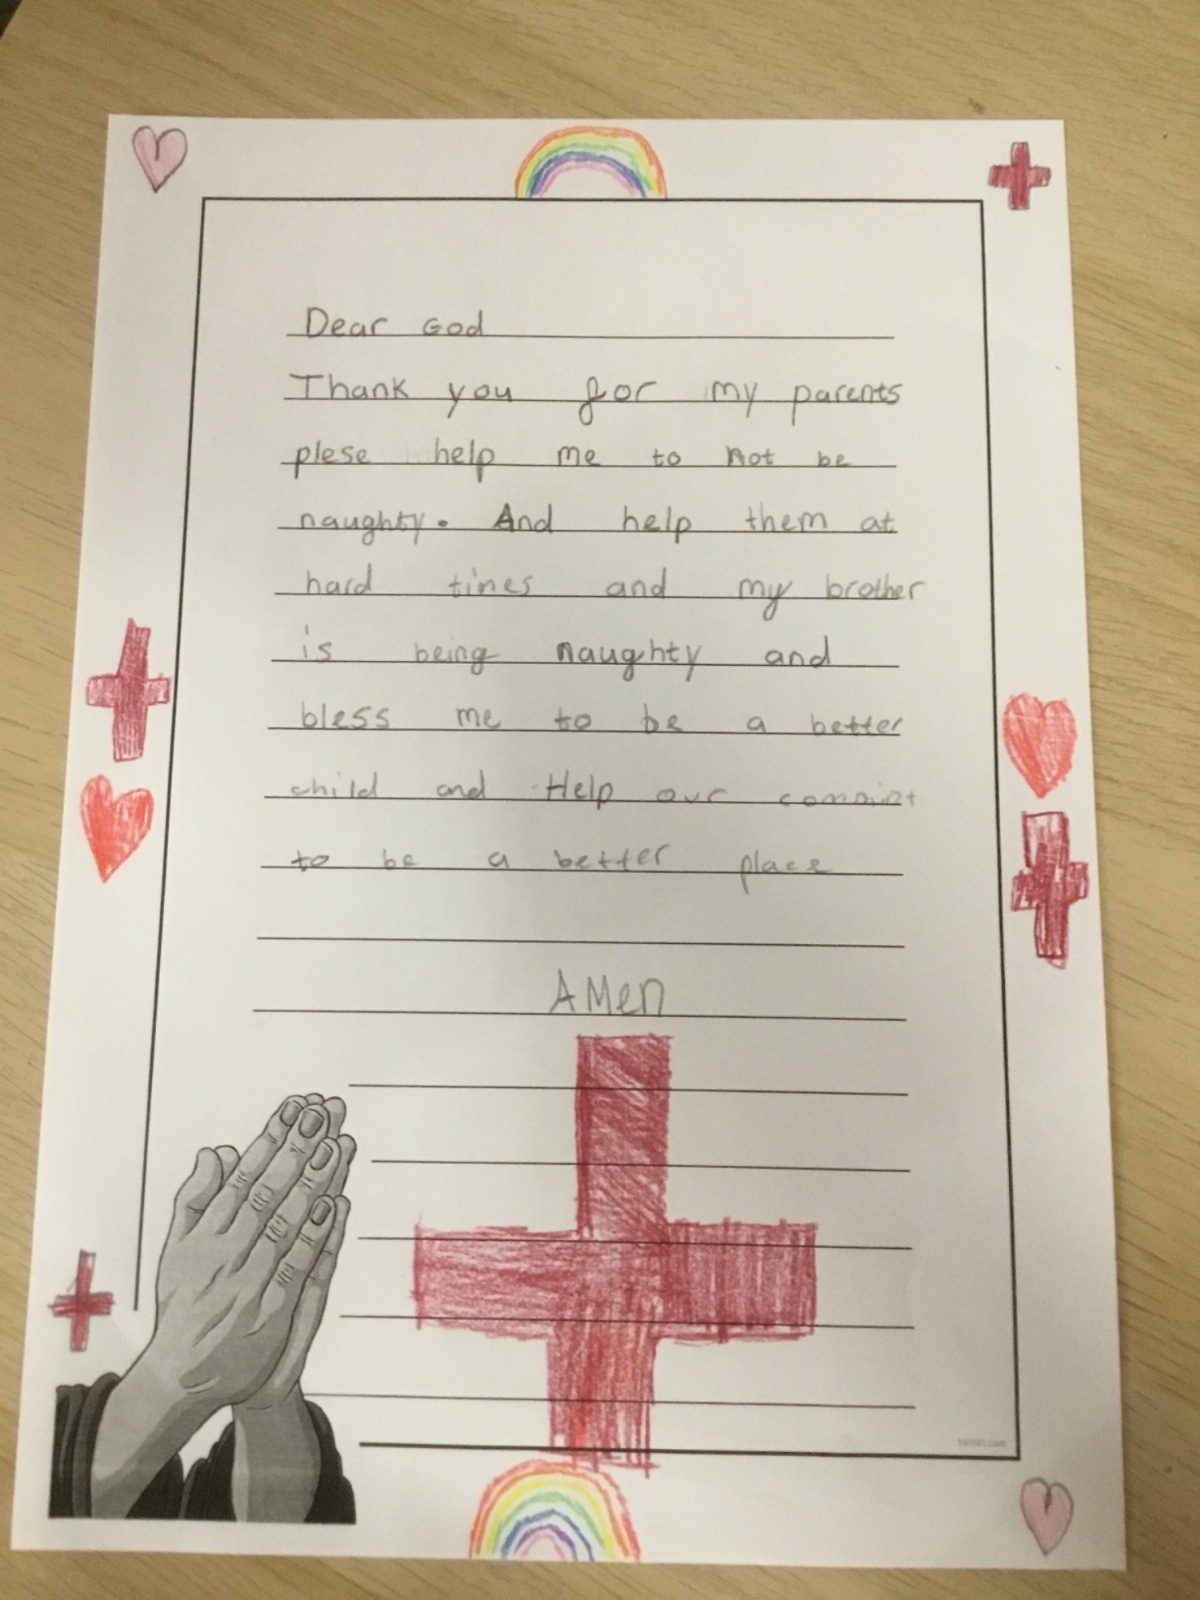 Dear God
Thank you for my parents
plese help me to not be
naughty. And help them at
hard tines and my brother
is being naughty and
bless me to be a better
child and Help our
to be a better place
AMen